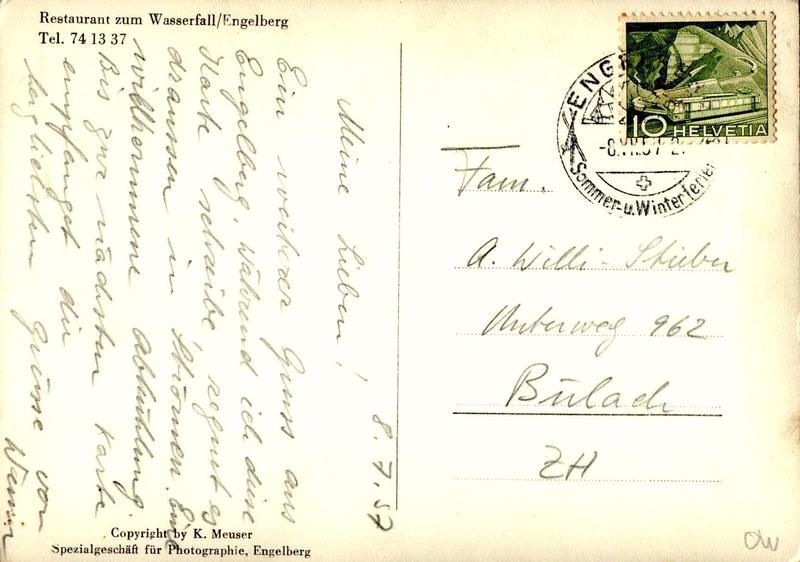 Restaurant zum Wasserfall/Engelberg
Tel. 74 13 37
8.7.57
Meine Lieben!
Ein weiterer Gruss aus
Engelberg. Während ich diese
Karte schreibe, regnet es
draussen in Strömen. Eine
willkommene Abkühlung.
Bis zur nächsten Karte
empfanget die
herzlichsten Grüsse von
HELVETIA
10
Sommer- u. Winterferien
Fam.
A. Willi-Stieber
Unterweg 962
Bülach
ZH
Copyright by K. Meuser
Spezialgeschäft für Photographie, Engelberg
OW